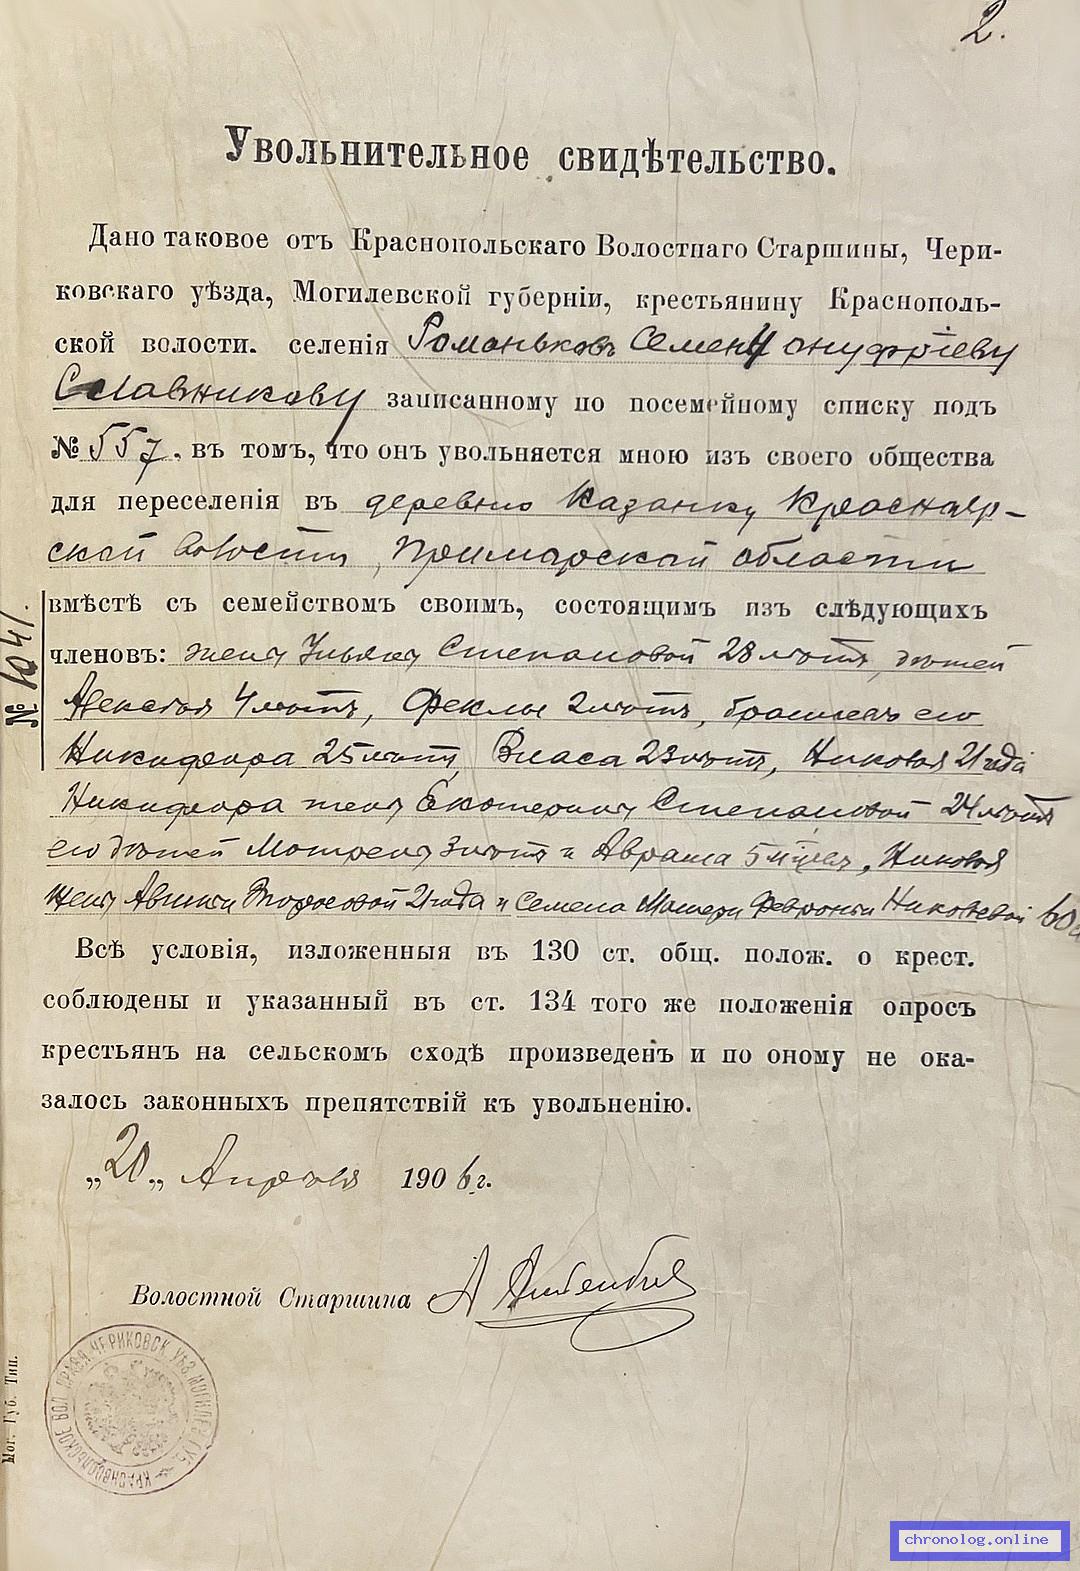 2.
Увольнительное свидѣтельство.
Дано таковое отъ Краснопольскаго Волостнаго Старшины, Чери-
ковскаго уѣзда, Могилевской губерніи, крестьянину Краснополь-
ской волости. селенія Романьковъ Семену Онуфріеву
Славникову записанному по посемейному списку подъ
№ 557. въ томъ, что онъ увольняется мною изъ своего общества
для переселенія въ деревню Казанку Краснояр-
ской волости, Приморской области
вмѣстѣ съ семействомъ своимъ, состоящимъ изъ слѣдующихъ
членовъ: жены Ульяны Степановой 28 лѣтъ, дѣтей
Алексея 4 лѣтъ, Феклы 2 лѣтъ, братьевъ его
Никифора 25 лѣтъ, Власа 23 лѣтъ, Якова 21 года
Никифора жены Екатерины Степановой 24 лѣтъ
его дѣтей Матрены 3 лѣтъ и Абрама 5 мѣсяц, Якова
жены 21 года и Семена Матери Февроніи Яковлевой 60
Всѣ условія, изложенныя въ 130 ст. общ. полож. о крест.
соблюдены и указанный въ ст. 134 того же положенія опросъ
крестьянъ на сельскомъ сходѣ произведенъ и по оному не ока-
залось законныхъ препятствій къ увольненію.
„20„ Апрѣля 1906 г.
Волостной Старшина А
№ 1041.
КРАСНОПОЛЬСКОЕ ВОЛ. ПРАВЛ. ЧЕРИКОВСК. УѢЗ. МОГИЛЕВ. ГУБ.
Мог. Губ. Тип.
chronolog.online